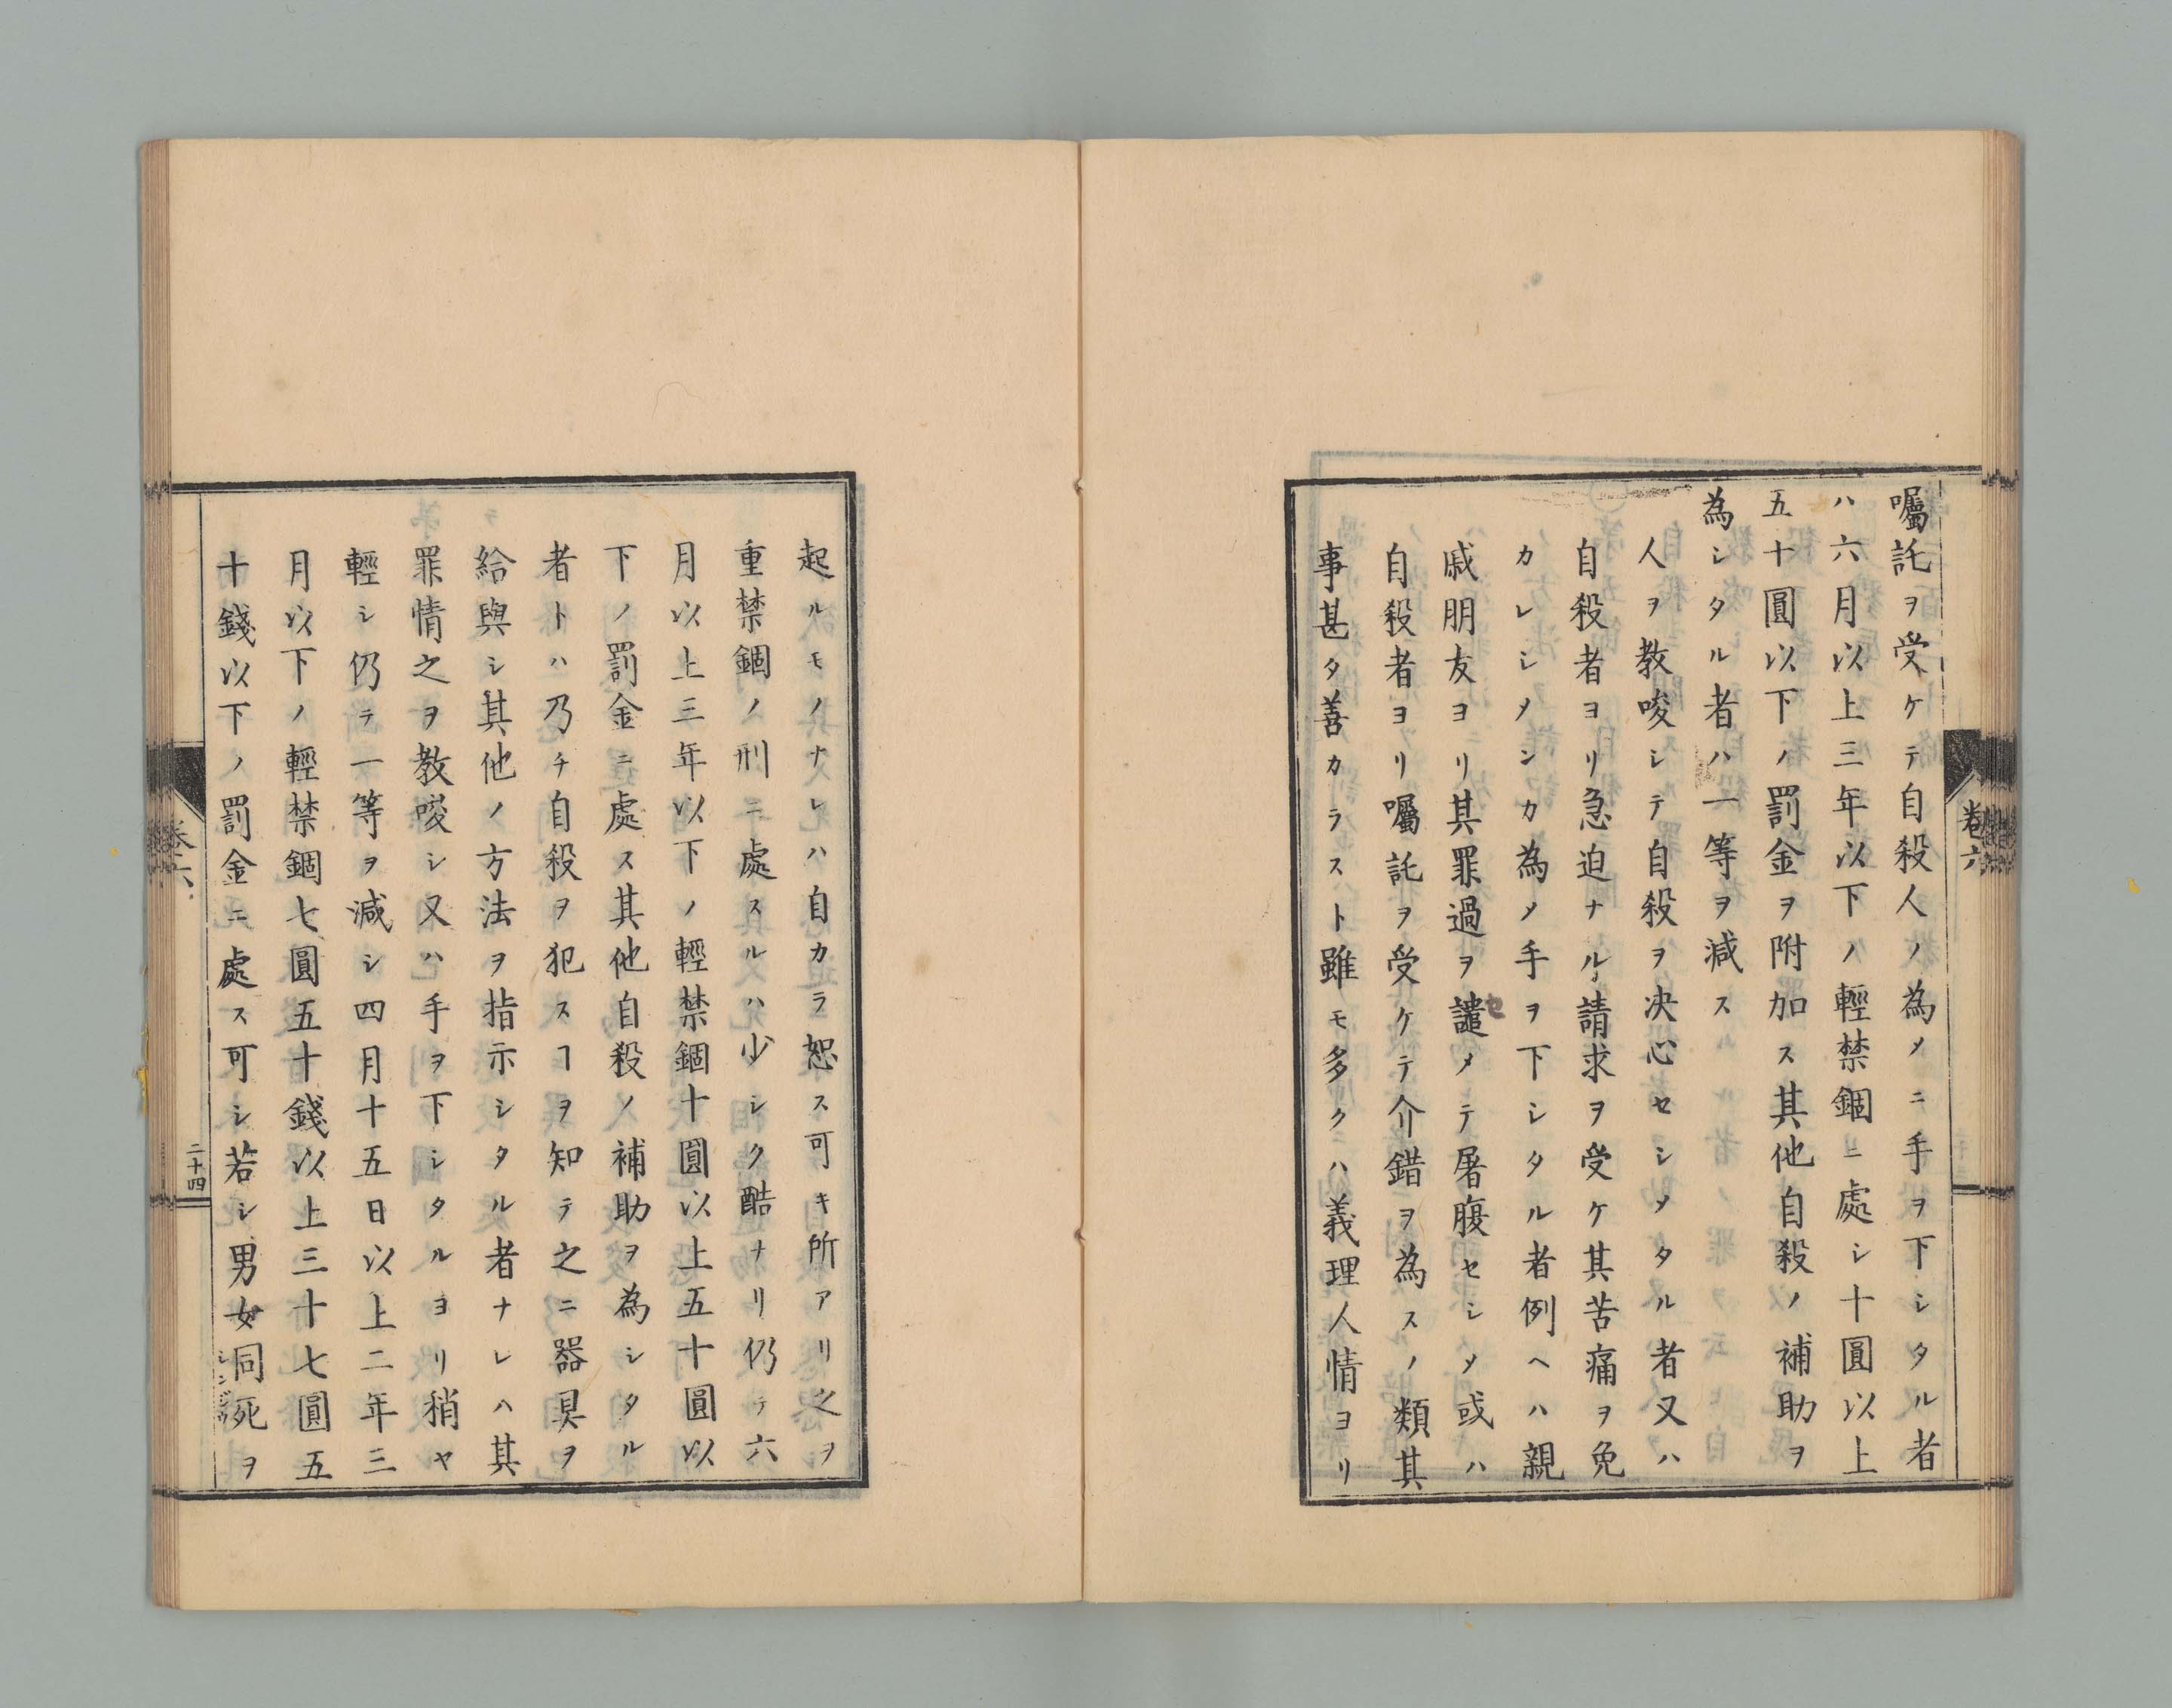 囑託ヲ受ケテ自殺人ノ為メニ手ヲ下シタル者
ハ六月以上三年以下ノ輕禁錮ニ處シ十圓以上
五十圓以下ノ罰金ヲ附加ス其他自殺ノ補助ヲ
為シタル者ハ一等ヲ減ス
人ヲ教唆シテ自殺ヲ决心セシメタル者又ハ
自殺者ヨリ急迫ナル請求ヲ受ケ其苦痛ヲ免
カレシメンカ為メ手ヲ下シタル者例ヘハ親
戚朋友ヨリ其罪過ヲ譴セメテ屠腹セシメ或ハ
自殺者ヨリ囑託ヲ受ケテ介錯ヲ為スノ類其
事甚タ善カラスト雖モ多クハ義理人情ヨリ
卷六
起ルモノナレハ自カラ恕ス可キ所アリ之ヲ
重禁錮ノ刑ニ處スルハ少シク酷ナリ仍テ六
月以上三年以下ノ輕禁錮十圓以上五十圓以
下ノ罰金ニ處ス其他自殺ノ補助ヲ為シタル
者トハ乃チ自殺ヲ犯スヿヲ知テ之ニ器具ヲ
給與シ其他ノ方法ヲ指示シタル者ナレハ其
罪情之ヲ教唆シ又ハ手ヲ下シタルヨリ稍ヤ
輕シ仍テ一等ヲ減シ四月十五日以上二年三
月以下ノ輕禁錮七圓五十錢以上三十七圓五
十錢以下ノ罰金ニ處ス可シ若シ男女同死ヲ
卷六
二十四